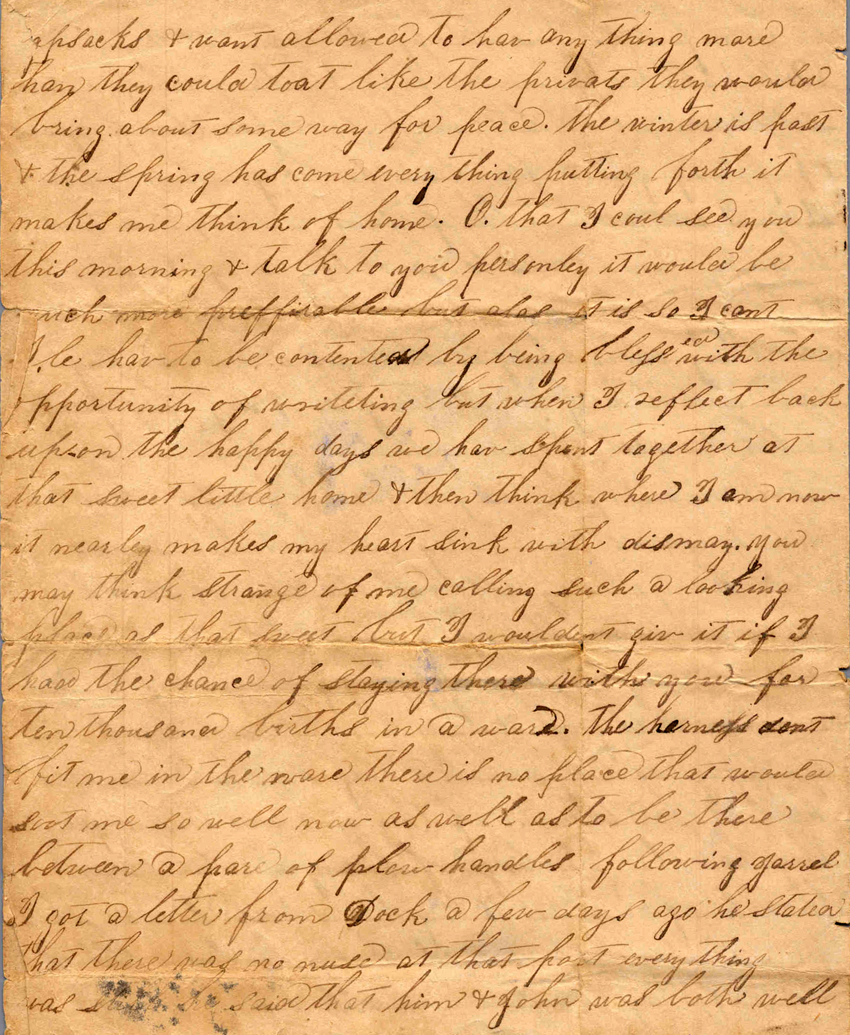 apsacks & want allowed to hav any thing more
than they could toat like the privats they would
bring about some way for peace. the winter is past
& the spring has come every thing putting forth it
makes me think of home. O. that I coul see you
this morning & talk to you personley it would be
much more preffirable but alas it is so I cant
I le hav to be contented by being blessed with the
opportunity of writeting but when I reflect back
upon the happy days we hav spent together at
that sweet little home & then think where I am now
it nearley makes my heart sink with dismay. you
may think strange of me calling such a looking
place as that sweet but I wouldent giv it if I
had the chance of staying there with you for
ten thousand births in a ware. the harness dont
fit me in the ware there is no place that would
soot me so well now as well as to be there
between a pare of plow handles following
I got a letter from Dock a few days ago he stated
that there was no nuse at that post every thing
was said that him & John was both well